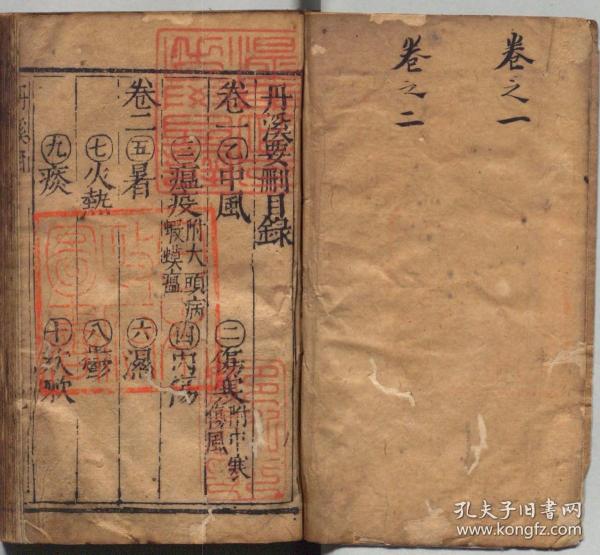 卷之一
卷之二
丹溪要刪目錄
卷一 乙中風 二傷寒附中寒傷風
三瘟疫附大頭病蝦蟆瘟 四內傷
卷二 五暑 六濕
七火熱 八鬱
九痰 十欬嗽
孔夫子旧书网
www.kongfz.com